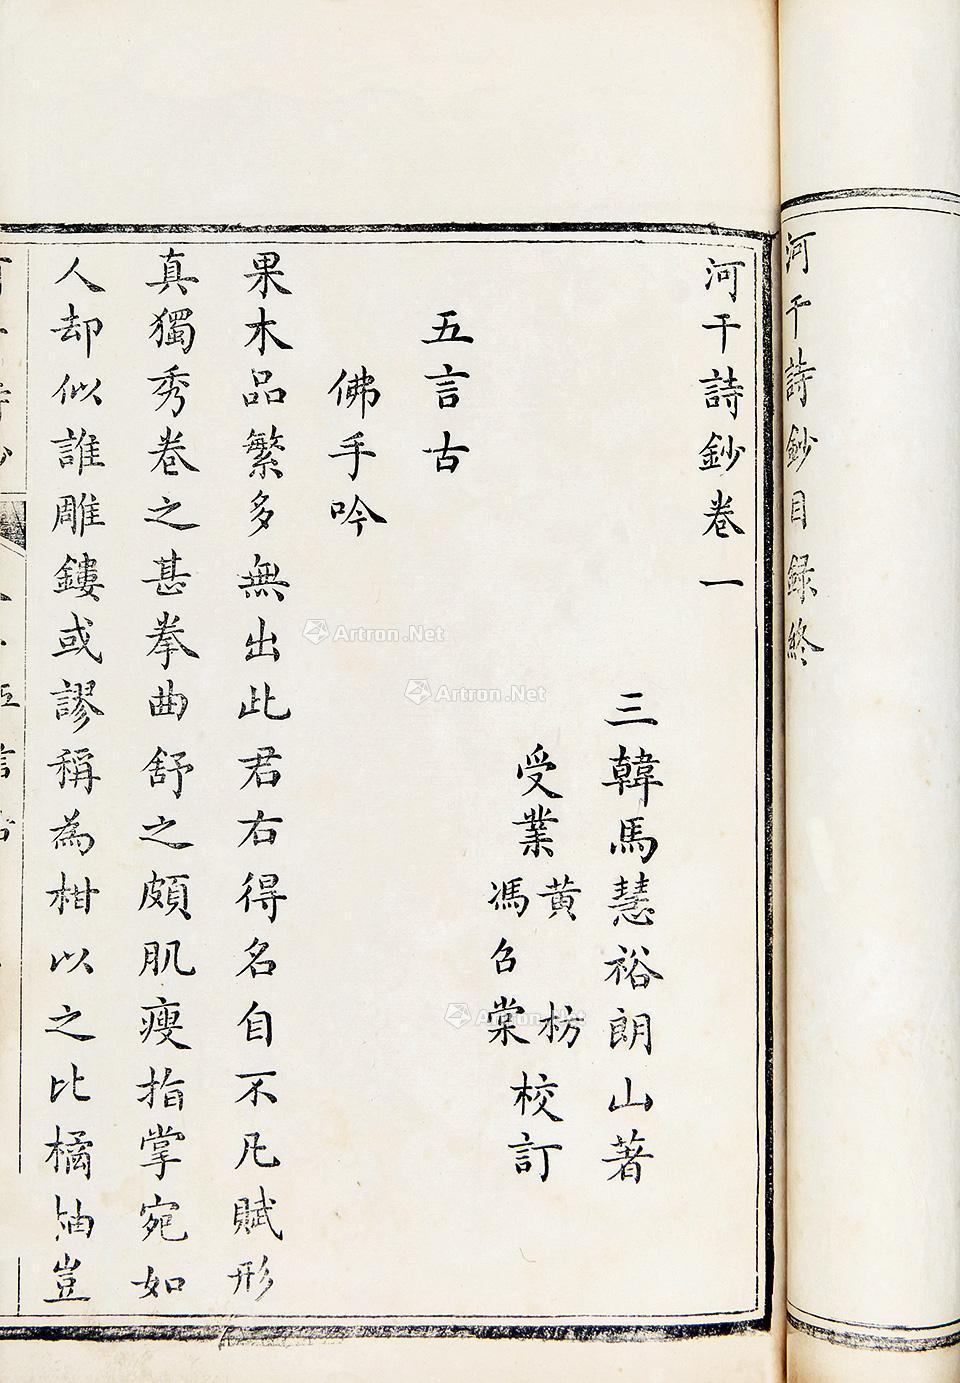 河干詩鈔目録終
河干詩鈔卷一
三韓馬慧裕朗山著
受業黄枋馮召棠校訂
五言古
佛手吟
果木品繁多無出此君右得名自不凡賦形
真獨秀卷之甚拳曲舒之頗肌瘦指掌宛如
人却似誰雕鏤或謬稱為柑以之比橘柚豈
Artron.Net
Artron.Net
Artron.Net